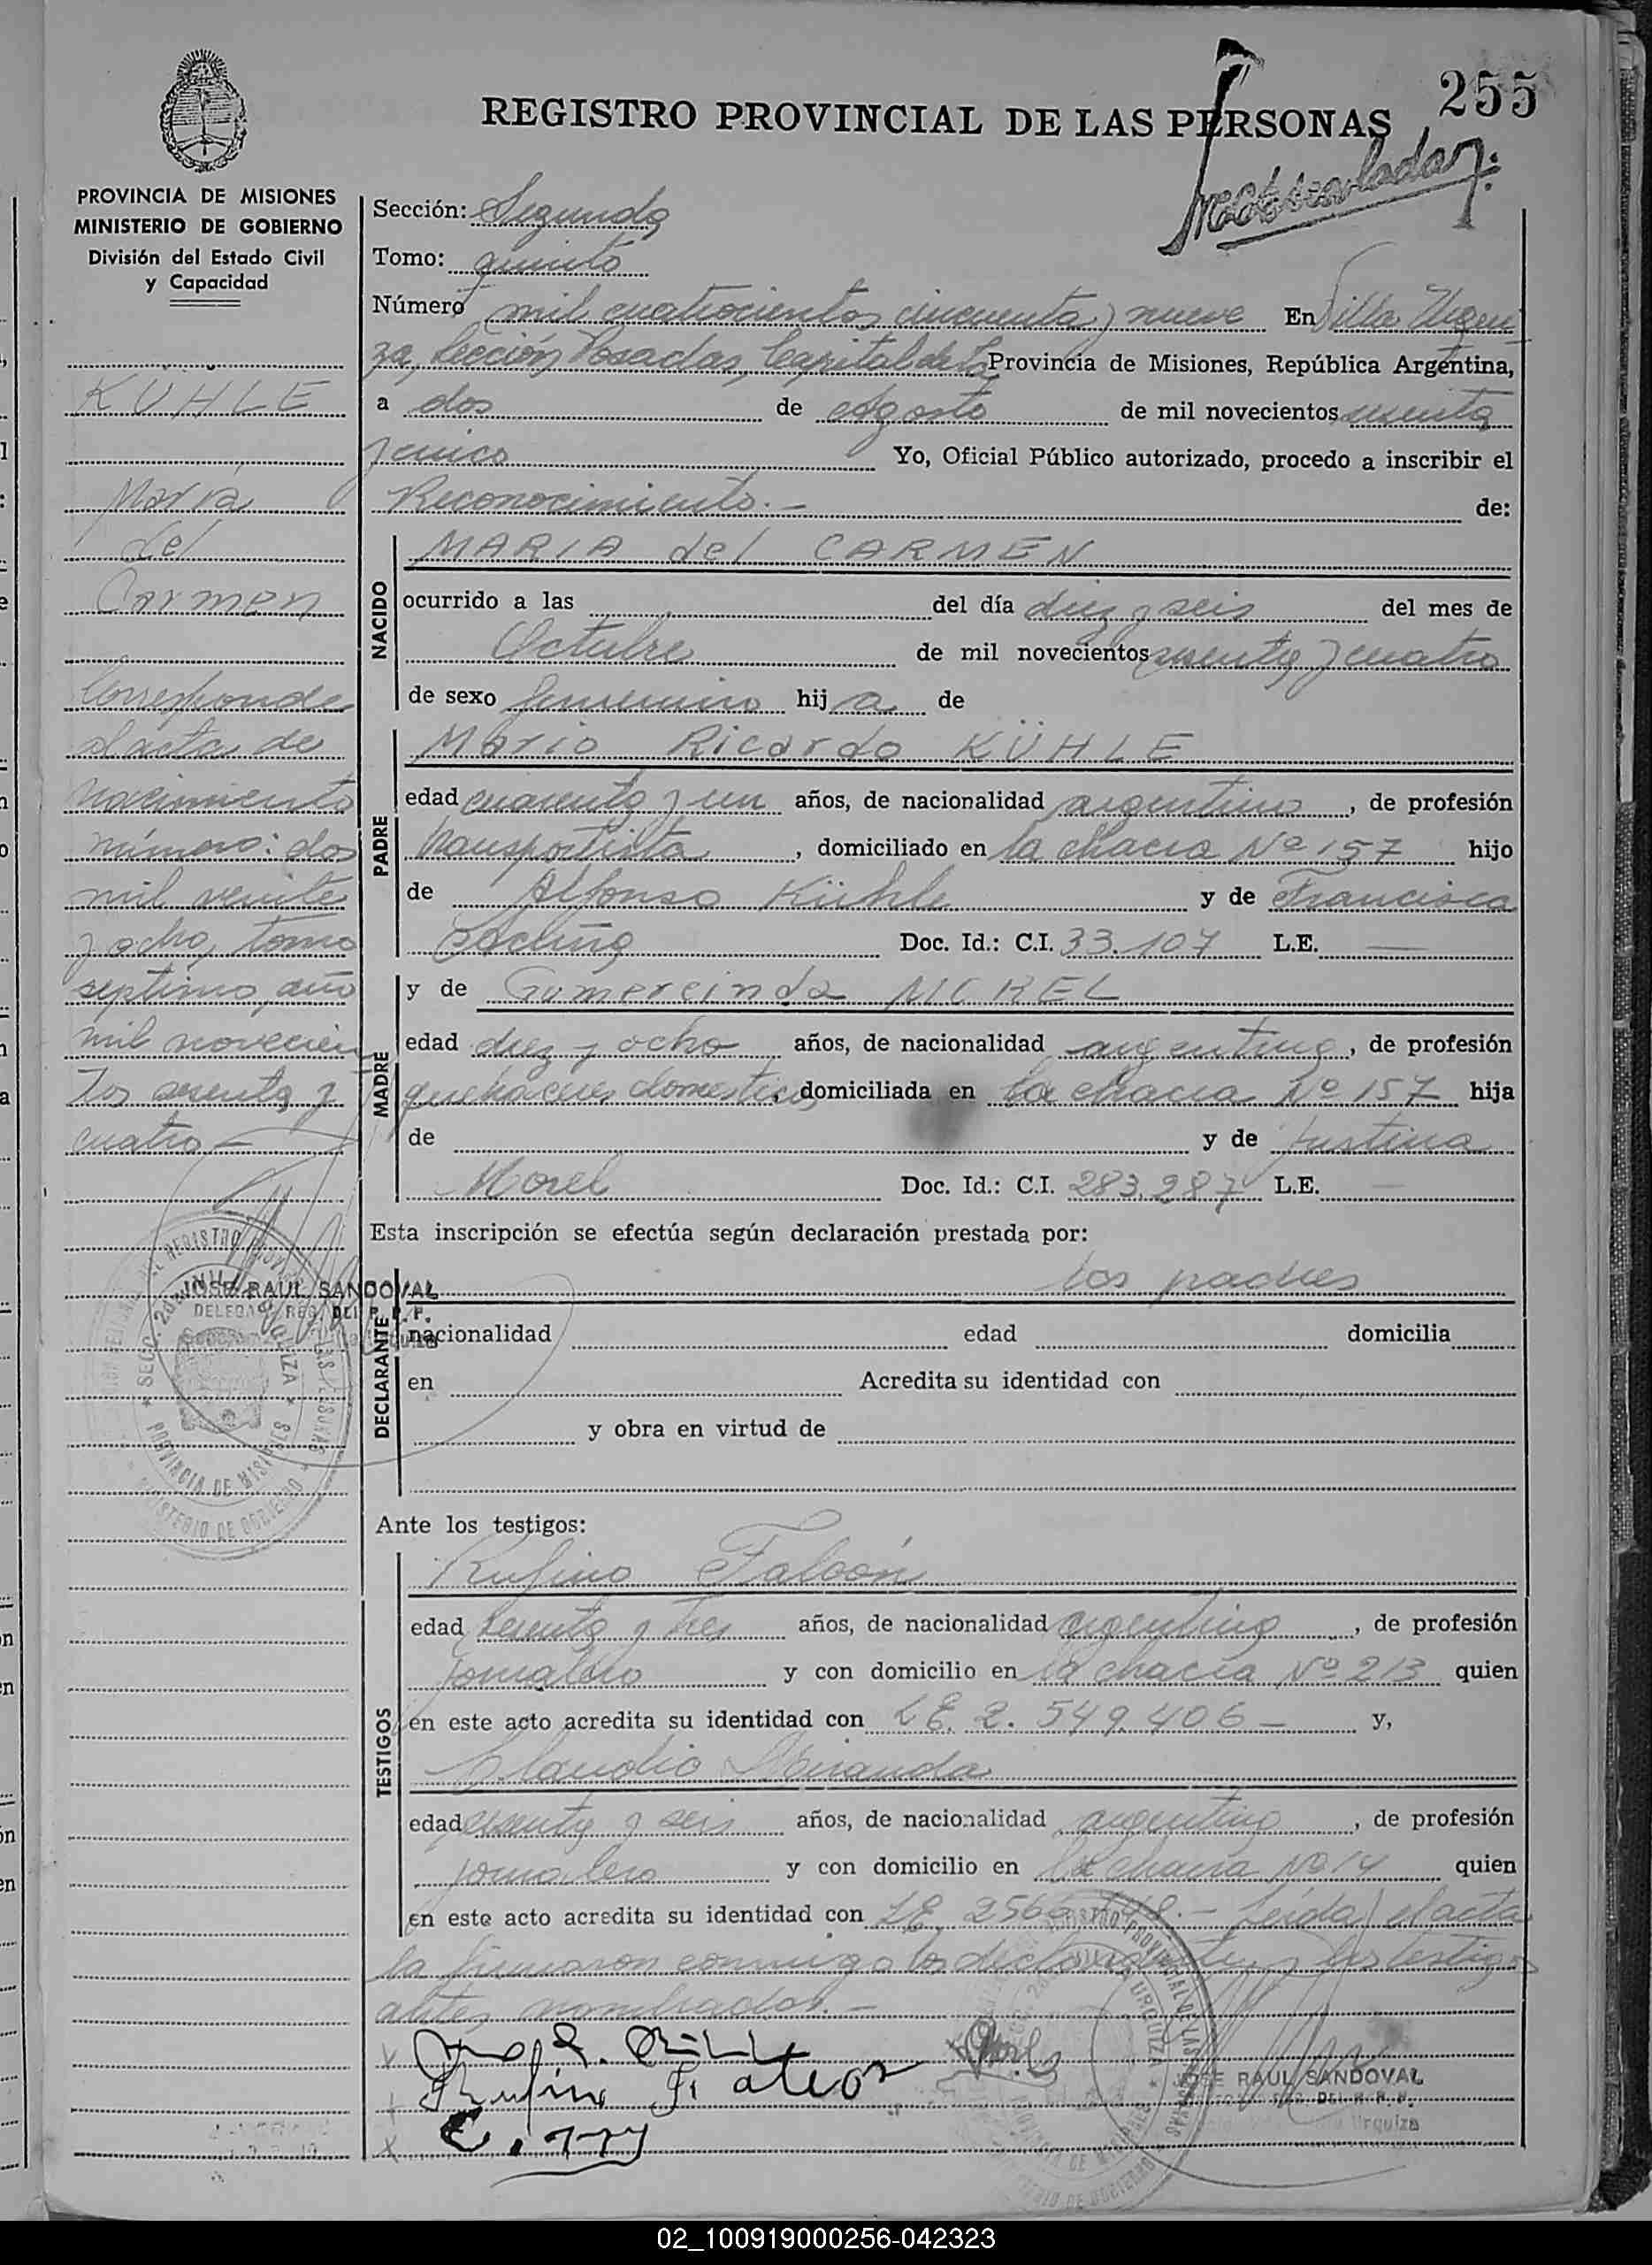 255
REGISTRO PROVINCIAL DE LAS PERSONAS
PROVINCIA DE MISIONES
MINISTERIO DE GOBIERNO
División del Estado Civil
y Capacidad
KÜHLE
María
del
Carmen
Corresponde
al acta de
nacimiento
número: dos
mil veinte
y ocho, tomo
septimo, año
mil novecien
tos sesenta y
cuatro.—
JOSE RAUL SANDOVAL
Sección: Segunda
Tomo: quinto
Número mil cuatrocientos cincuenta y nueve En Villa Urqui
za, Sección Posadas, Capital de la Provincia de Misiones, República Argentina,
a dos de Agosto de mil novecientos sesenta
y cinco Yo, Oficial Público autorizado, procedo a inscribir el
Reconocimiento.— de:
NACIDO
MARIA del CARMEN
ocurrido a las del día diez y seis del mes de
Octubre de mil novecientos sesenta y cuatro
de sexo femenino hija de
PADRE
Mario Ricardo KÜHLE
edad cuarenta y un años, de nacionalidad argentino, de profesión
transportista, domiciliado en la chacra Nº 157 hijo
de Alfonso Kühle y de Francisca
Doc. Id.: C.I. 33.107 L.E. —
MADRE
y de Gumercinda
edad diez y ocho años, de nacionalidad argentina, de profesión
quehaceres domesticos, domiciliada en la chacra Nº 157 hija
de y de Justina
Morel Doc. Id.: C.I. 283.287 L.E. —
Esta inscripción se efectúa según declaración prestada por:
DECLARANTE
los padres
nacionalidad edad domicilia
en Acredita su identidad con
y obra en virtud de
Ante los testigos:
TESTIGOS
Rufino Falcón
edad sesenta y tres años, de nacionalidad argentino, de profesión
jornalero y con domicilio en la chacra Nº 213 quien
en este acto acredita su identidad con L.E. 2.549.406 — y,
Claudio Miranda
edad sesenta y seis años, de nacionalidad argentino, de profesión
jornalero y con domicilio en la chacra Nº 14 quien
en este acto acredita su identidad con L.E. Leída el acta
la firmaron conmigo los declarantes y los testigos
antes nombrados.—
Rufino
JOSE RAUL SANDOVAL
02_100919000256-042323